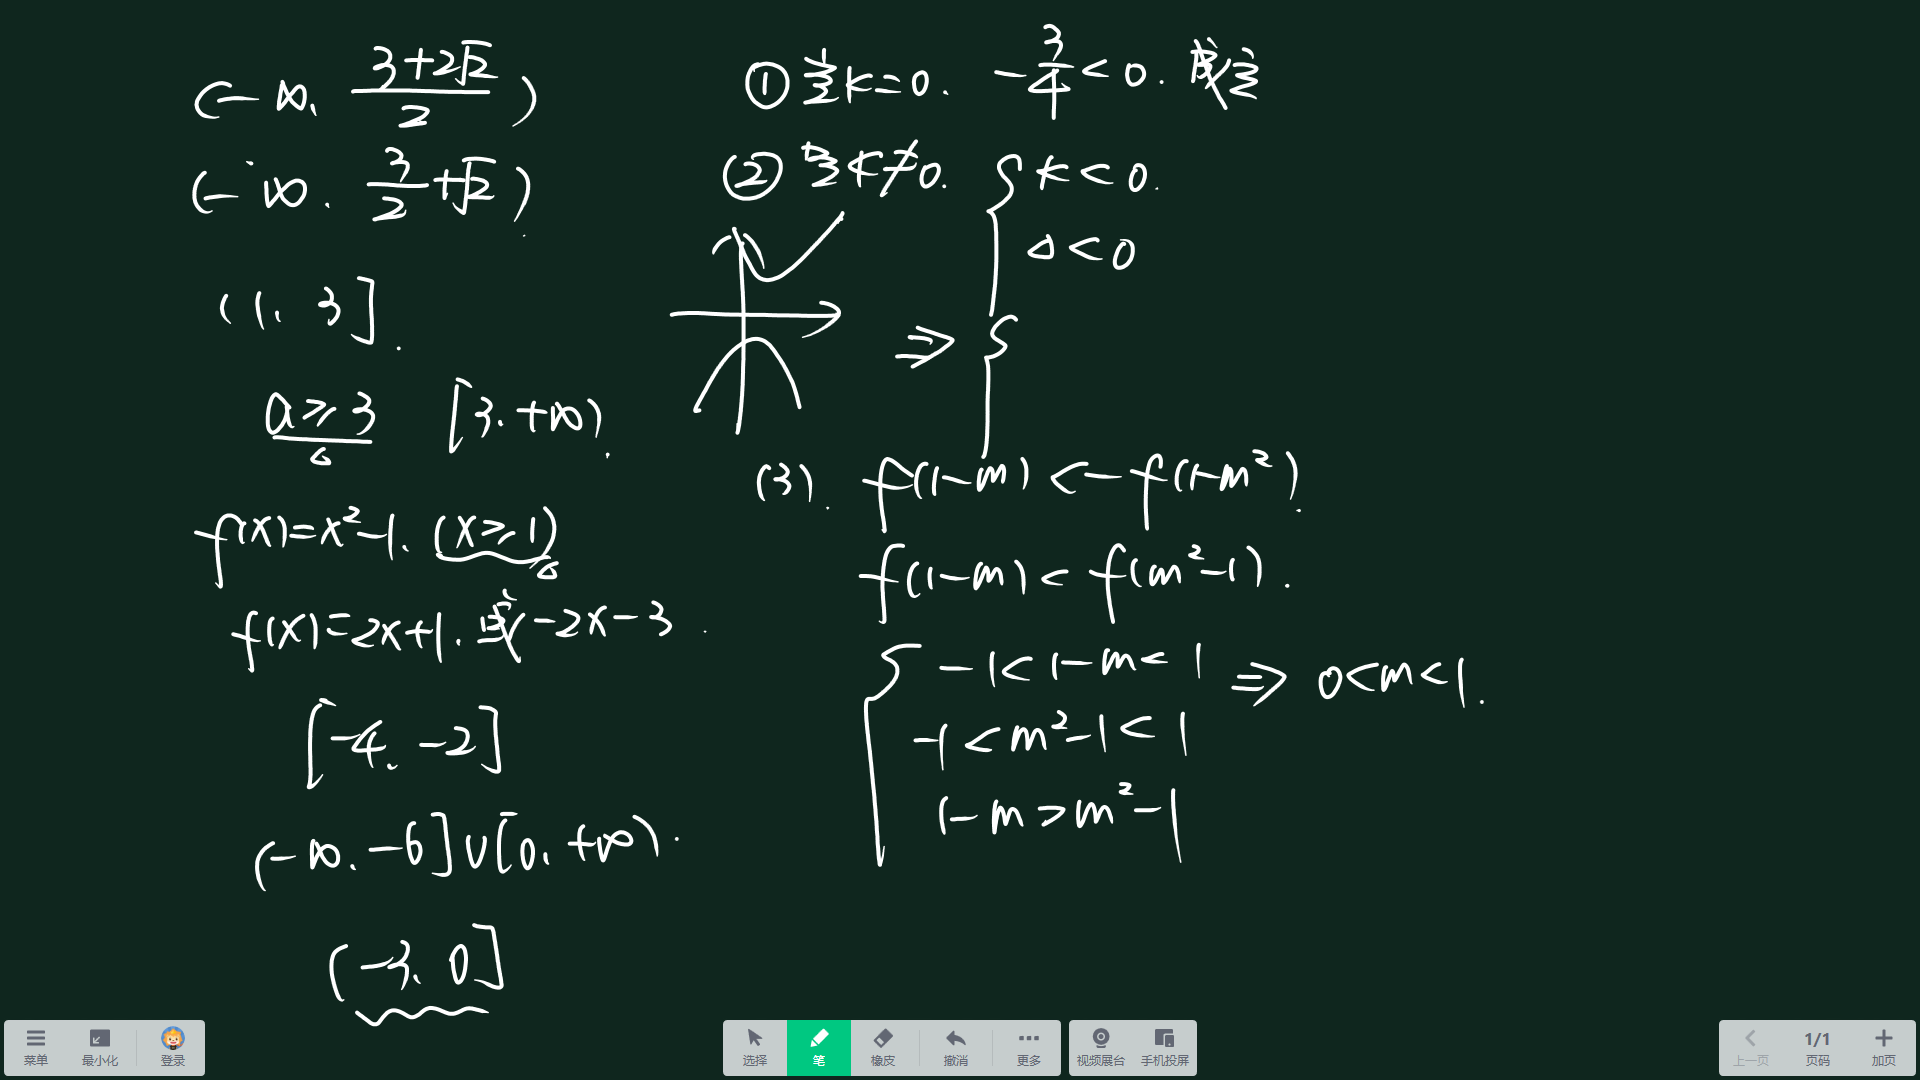 (-∞, (3+2√2)/2)
(-∞, 3/2+√2)
(1, 3].
a≥3 [3, +∞).
f(x)=x²-1, (x≥1)
f(x)=2x+1, 或 -2x-3.
[-4, -2]
(-∞, -6]∪[0, +∞).
(-3, 0]
① 当k=0. -3/4<0. 成立
② 当k≠0. { k<0.
Δ<0
⇒ {
(3). f(1-m)<-f(1-m²).
f(1-m)<f(m²-1).
{ -1<1-m<1 ⇒ 0<m<1.
-1<m²-1<1
1-m>m²-1
菜单 最小化 登录 选择 笔 橡皮 撤消 更多 视频展台 手机投屏 上一页 1/1 页码 加页